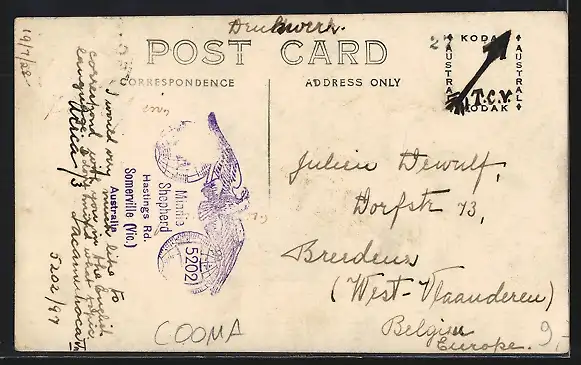 Druckswerk.
POST CARD
CORRESPONDENCE
ADDRESS ONLY
KODAK
AUSTRAL
AUSTRAL
KODAK
T.C.V.
19/7/28
I would very much like to
correspond with you in the English
language.
5202/97
Minnie
Shepherd
Hastings Rd.
Somerville (Vic.)
Australia
5202
Julien Dewulf,
Dorfstr 73,
Breedene
(West-Vlaanderen)
Belgien
Europe.
COOMA
9,-